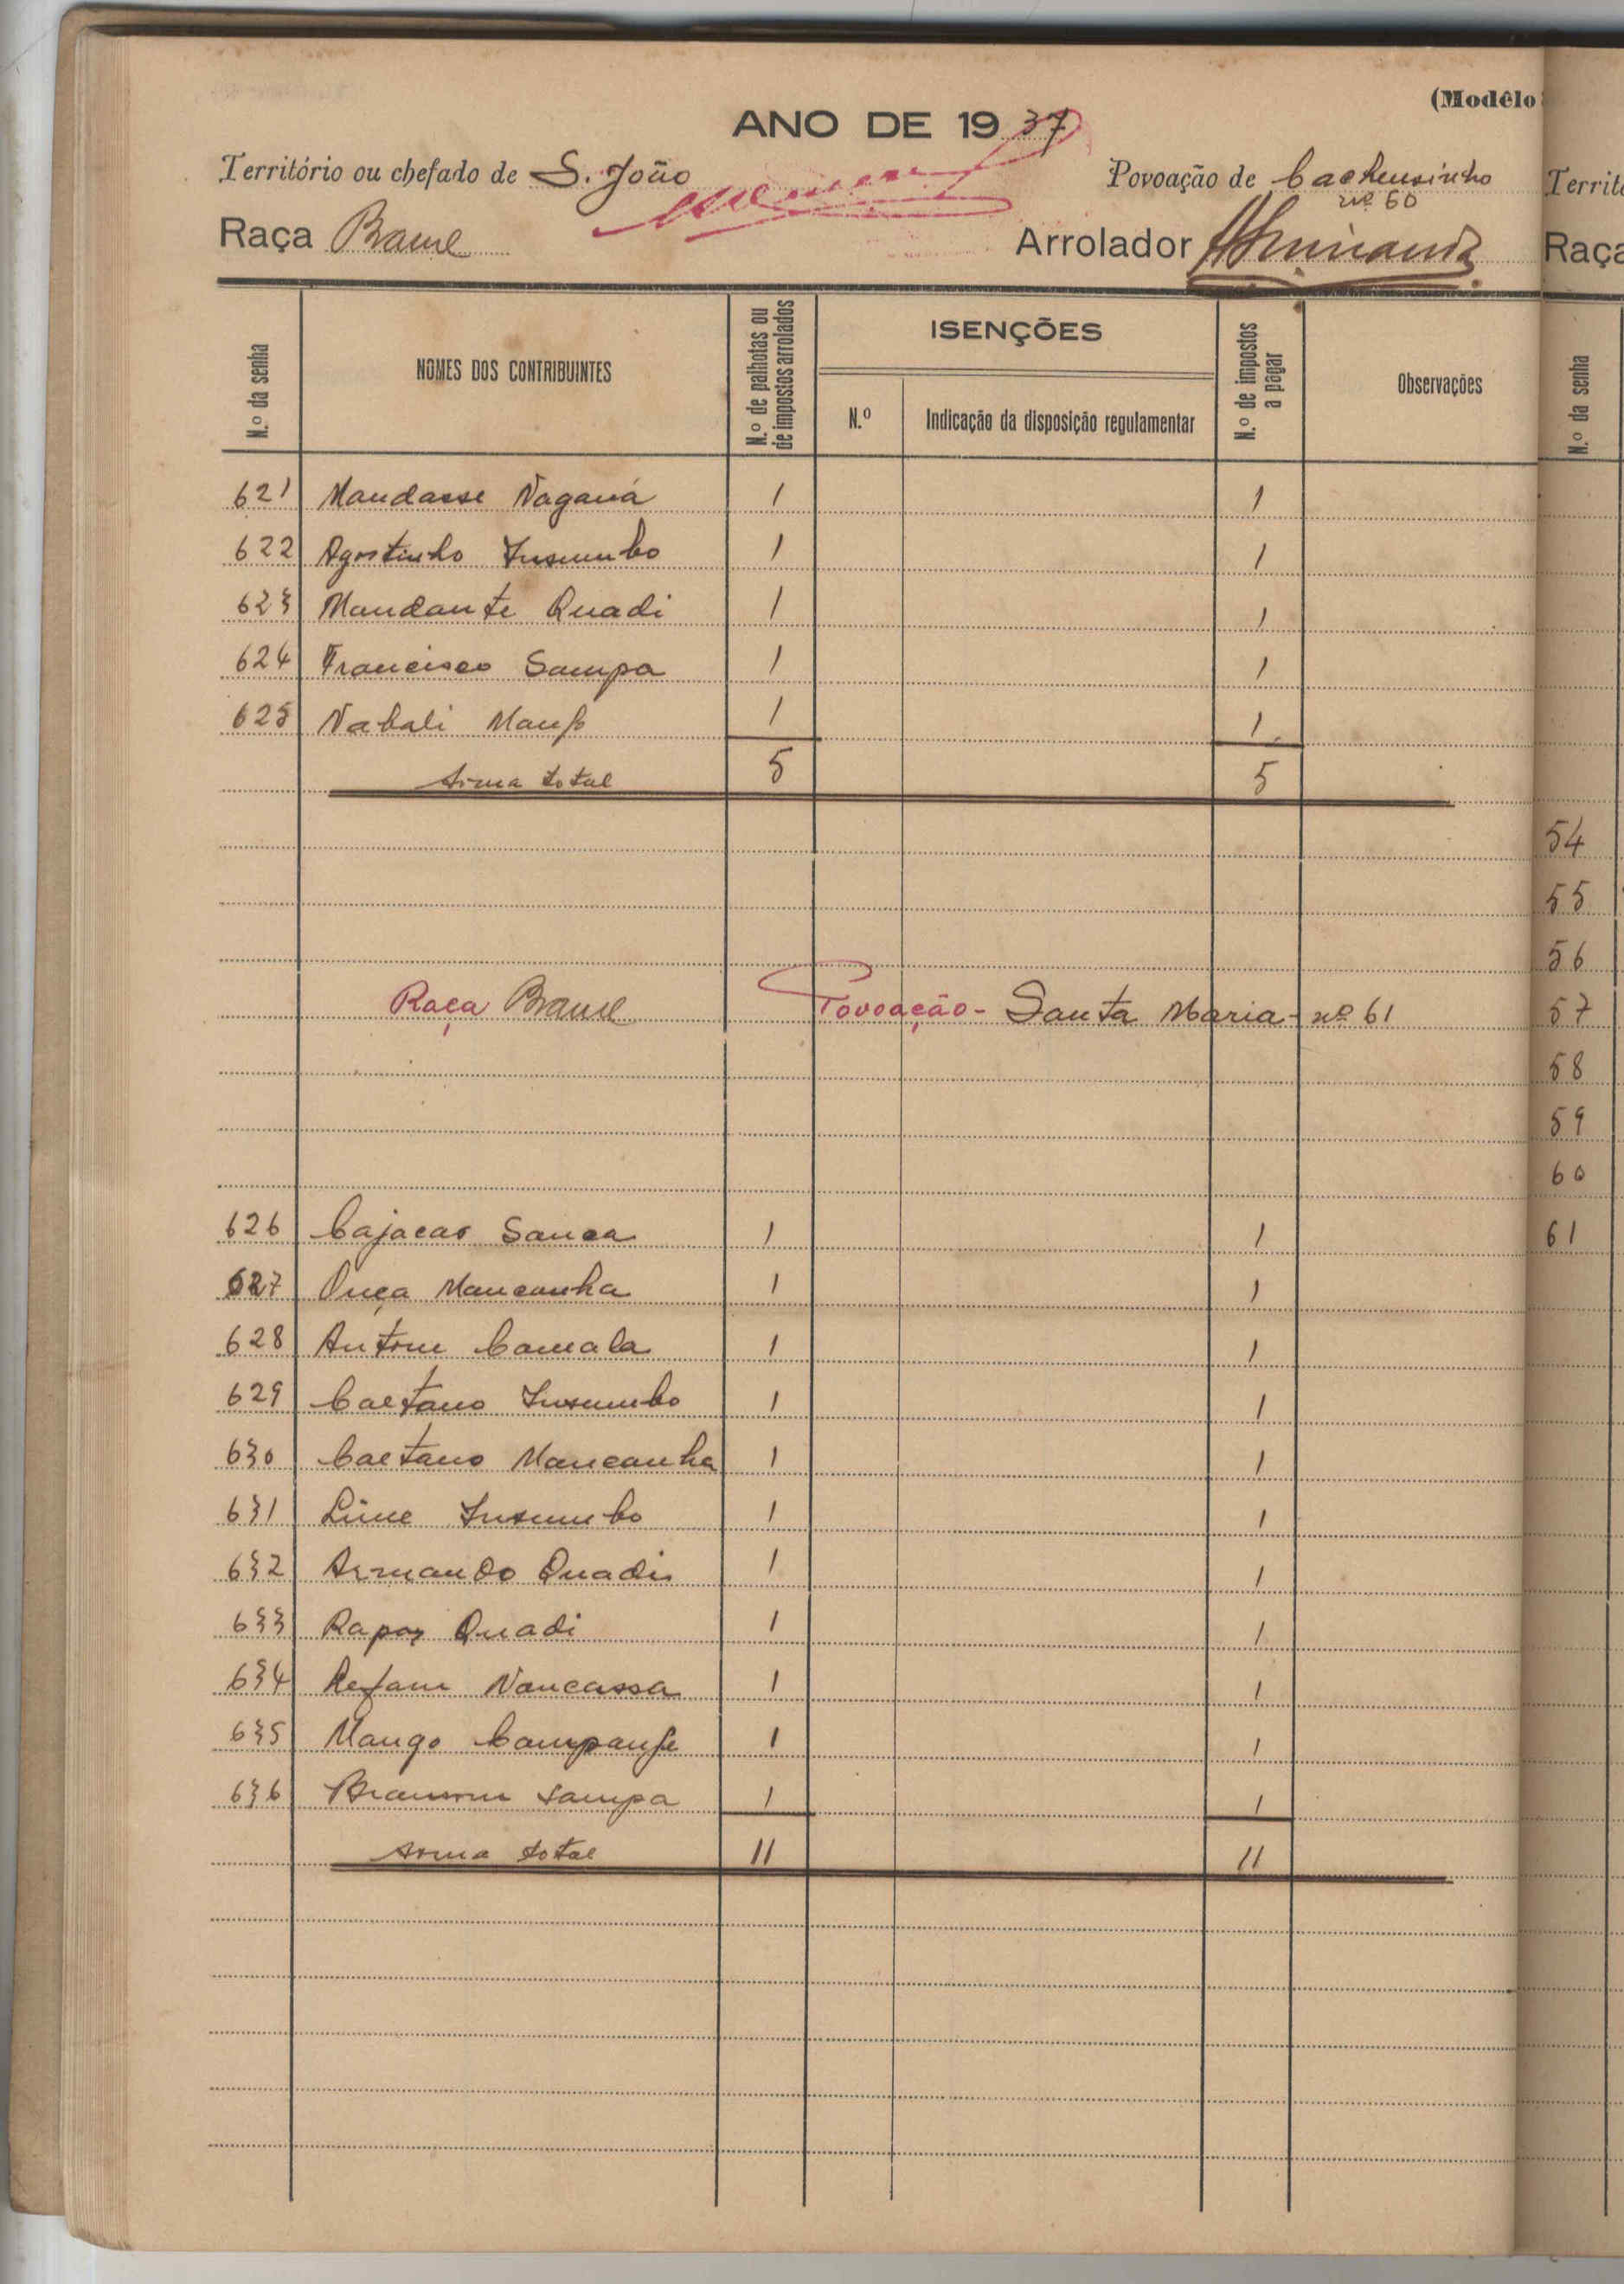 (Modêlo
ANO DE 1937
Território ou chefado de S. João Povoação de Cacheusinho
nº 60
Raça Brame Arrolador
N.º da senha
NOMES DOS CONTRIBUINTES
N.º de palhotas ou de impostos arrolados
ISENÇÕES
N.º
Indicação da disposição regulamentar
N.º de impostos a pagar
Observações
621 Mandasse Nagana 1 1
622 Agostinho Insumbo 1 1
623 Mandante Quadi 1 1
624 Francisco Sampa 1 1
625 Nabali 1 1
Soma total 5 5
Raça Brame Povoação - Santa Maria - nº 61
626 Cajacar Sanca 1 1
627 Onça Mancanha 1 1
628 Antone Camala 1 1
629 Caetano Insumbo 1 1
630 Caetano Mancanha 1 1
631 Insumbo 1 1
632 Armando Quadi 1 1
633 Rapaz Quadi 1 1
634 Nancassa 1 1
635 Mango 1 1
636 Sampa 1 1
Soma total 11 11
Territ
Raça
N.º da senha
54
55
56
57
58
59
60
61